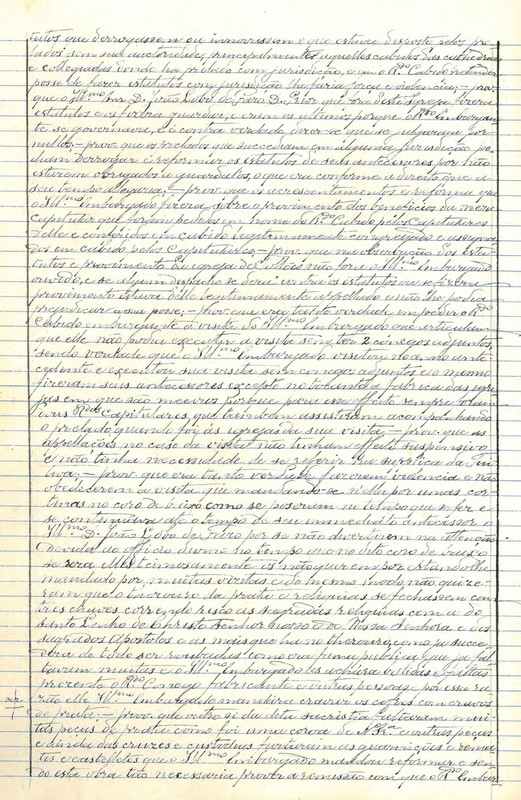 tutos que derrogassem ou innovassem o que estava disposto pelos pre-
lados sem sua auctoridade, principalmente aquelles cabidos das cathedraes
e collegiadas onde ha prelado com jurisdição, e em o R.do Cabido
posse de fazer estatutos com jurisdição lhe faria força e violencia; — prov.
que o Ill.mo Snr. D. João Lobo de Faro D. Prior que foi desta igreja fizera
estatutos e os fizera guardar, e eram os ultimos porque o R.do Embargan-
te se governava, e é contra verdade dizer-se que se julgaram por
nullos; — prov. que os prelados que succederam em alguma jurisdição po-
diam derrogar e reformar os estatutos de seus antecessores por não
estarem obrigados a guardal-os, o que era conforme a direito que a
seu tempo allegaria; — prov. que os acrescentamentos e reforma que
o Ill.mo Embargado fizera sobre o provimento dos beneficios da meza
capitular que foram pedidos em nome do R.do Cabido pelos Capitulares
delle e concedidos em cabido legitimamente congregado e assigna-
dos em cabido pelos Capitulares; — prov. que na observação dos esta-
tutos e provimento da igreja de não fora o Ill.mo Embargado
ouvido, e se algum despacho se dera contra os estatutos ou se fizera
provimento estava delle legitimamente appellado e não lhe podia
prejudicar a sua posse; — prov. que era tanto verdade impedir o R.do
Cabido embargante a visita do Ill.mo Embargado que articulam
que elle não podia executar a visita sem ter 2 conegos adjuntos,
sendo verdade que o Ill.mo Embargado visitou no anno ante-
cedente e executou sua visita sem conegos adjuntos e o mesmo
fizeram seus antecessores excepto no tocante a fabrica das igre-
jas em que são meeiros porque para esse effeito sempre
os R.dos Capitulares, que tambem assistiram acompanhando
o prelado quando foi ás igrejas da sua visita; — prov. que as
appellações no caso da visita não tinham effeito suspensivo
e não tinha necessidade de se referir na supplica da
; — prov. que era tanto verdade fazerem violencia e não
obedecerem á visita que mandando-se nella por umas cor-
tinas no coro debaixo como se poseram no tempo que se fez e
se continuava até o tempo do seu immediato antecessor o
Ill.mo D. João Lobo de Faro por se não divertirem na attenção
devida ao officio divino no tempo que no dito coro debaixo
se resa elles teimosamente os não querem por estando-lhe
mandado por muitas visitas e do mesmo modo não quize-
ram que o thesouro da prata e reliquias se fechasse com
tres chaves correndo risco as sagradas reliquias como a do
Santo Lenho de Christo Senhor nosso e de Nossa Senhora e dos
sagrados Apostolos e as mais que ha no thesouro, como ja succe-
dera de tudo ser roubado como era fama publica que ja fal-
tavam muitas e o Ill.mo Embargado as achára e
presente o R.do Conego fabricante e outras pessoas, e por essa ra-
zão elle Ill.mo Embargado mandára cravar os cofres com cravos
de prata; — prov. que outro si da dita sacristia faltaram mui-
tas peças de prata como foi uma coroa de N. Sr.a e outras peças
e ainda das cruzes e custodias furtaram as guarnições e rema-
tes e casteletes que o Ill.mo Embargado mandou reformar e sen-
do esta obra tão necessaria provára a remissão com que o R.do Embar-